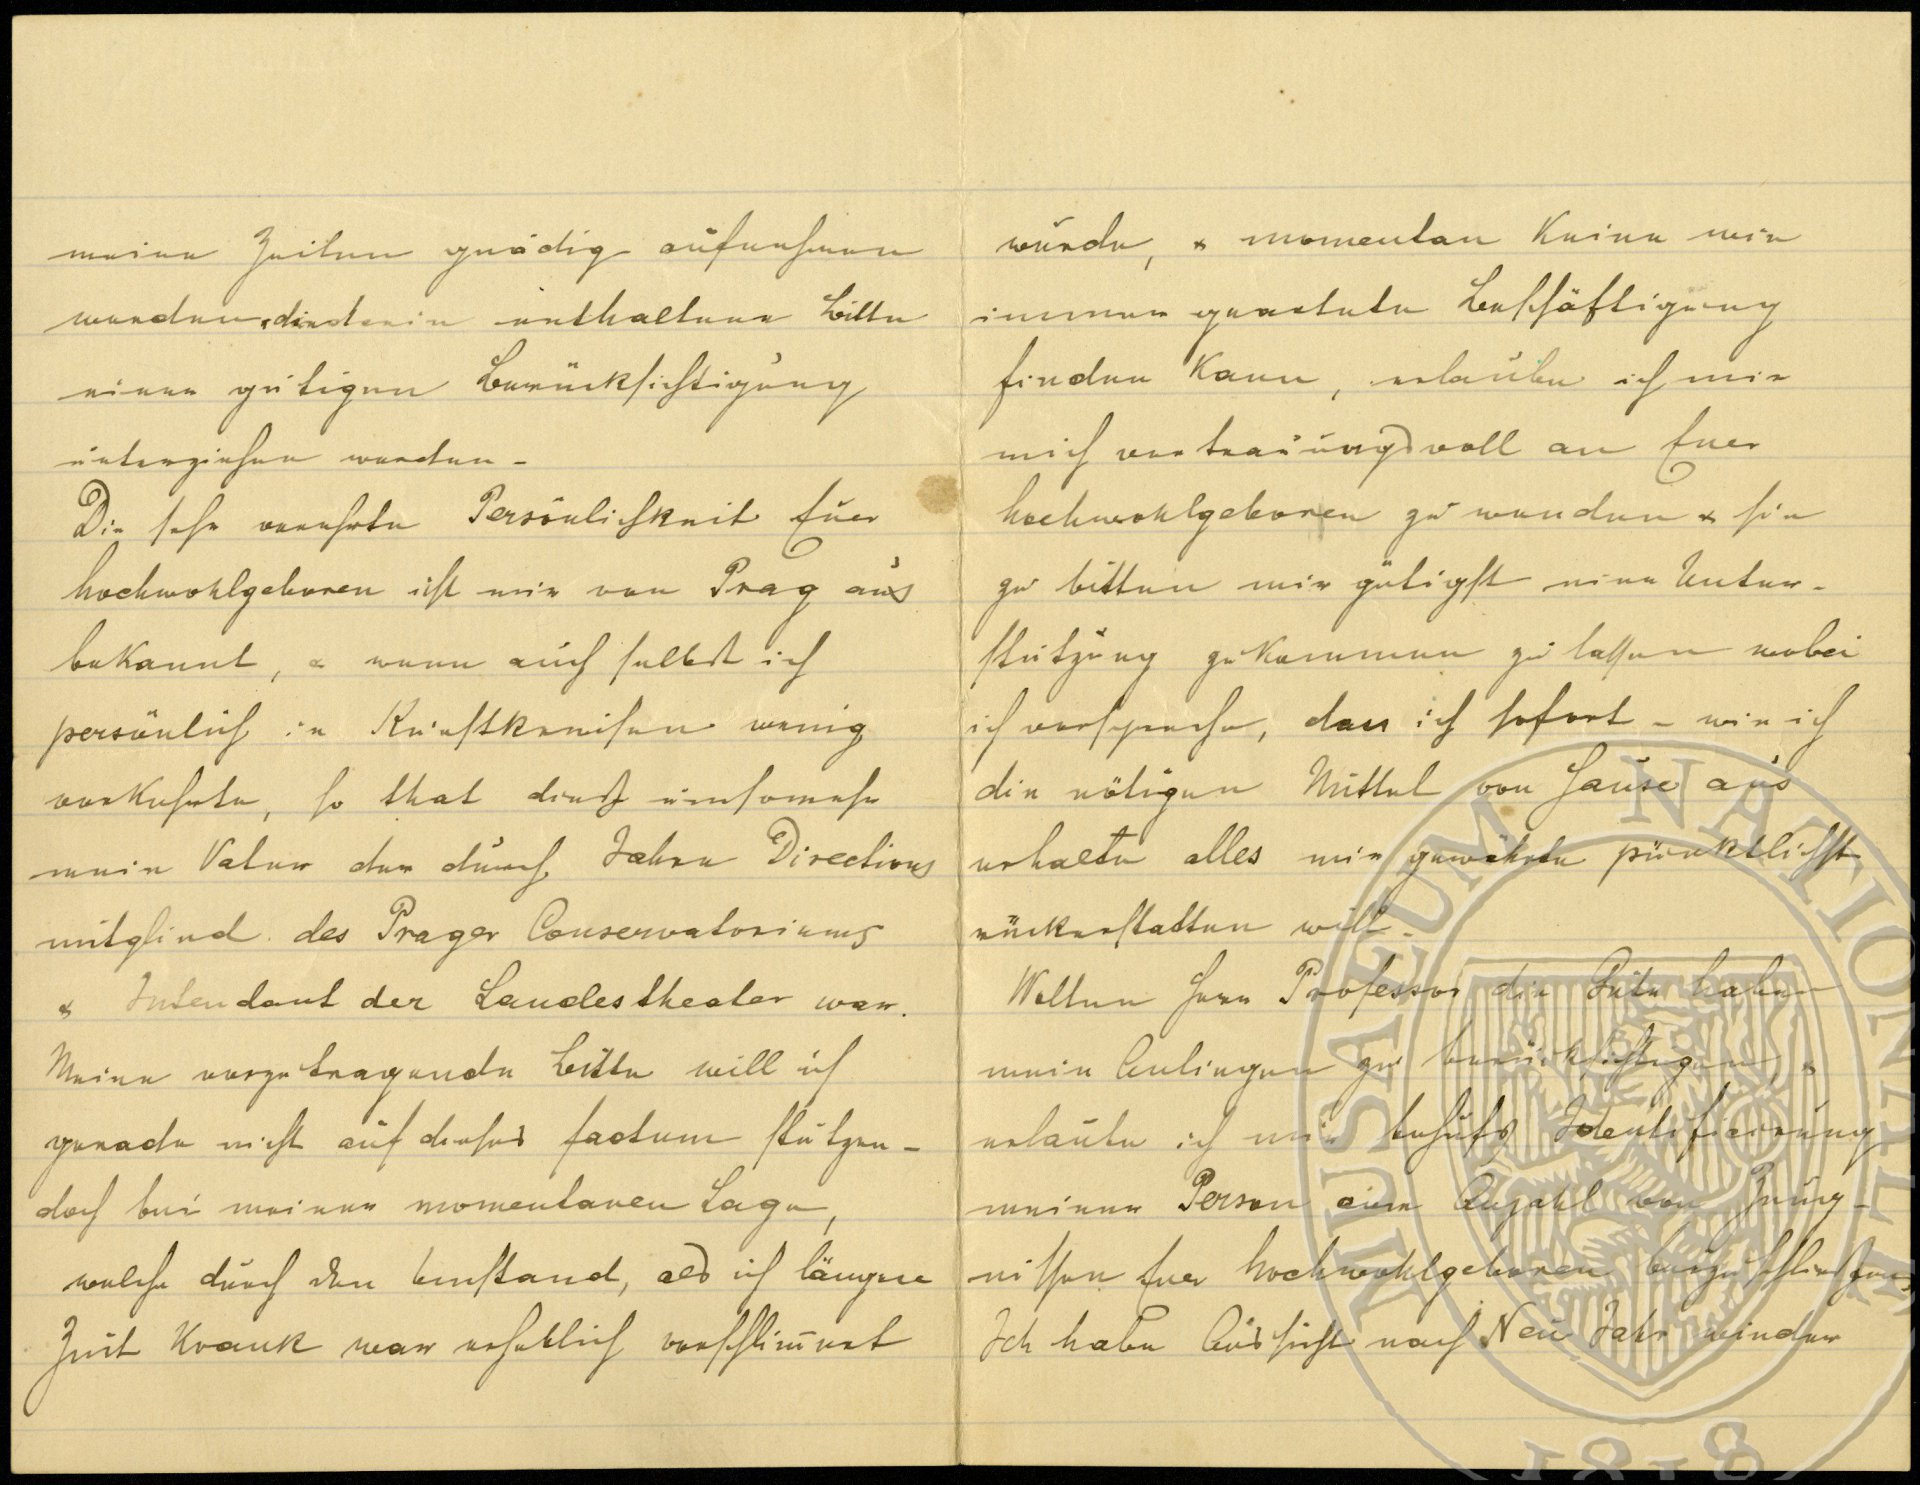 meine Zeilen gnädig aufnehmen
werden, die darin enthaltene Bitte
einer gütigen Berücksichtigung
unterziehen werden –
Die sehr verehrte Persönlichkeit Euer
hochwohlgeboren ist mir von Prag aus
bekannt, & wenn auch selbst ich
persönlich in Kunstkreisen wenig
verkehrte, so that dies umsomehr
mein Vater der durch Jahre Directions
mitglied des Prager Conservatoriums
& Intendant der Landestheater war.
Meine vorzutragende Bitte will ich
gerade nicht auf dieses factum stützen –
doch bei meiner momentanen Lage,
welche durch den Umstand, als ich längere
Zeit Krank war erheblich verschlimmert
wurde, & momentan Keine wie
immer geartete Beschäftigung
finden Kann, erlaube ich mir
mich vertrauungsvoll an Euer
hochwohlgeboren zu wenden & sie
zu bitten mir gütigst eine Unter-
stützung zukommen zu lassen wobei
ich verspreche, dass ich sofort – wie ich
die nötigen Mittel von Hause aus
erhalte alles mir gewährte pünktlichst
rückerstatten will –
Wollen Herr Professor die Güte haben
mein Anliegen zu berücksichtigen, &
erlaube ich mir behufs Identificirung
meiner Person eine Anzahl von Zeug-
nissen Euer hochwohlgeboren beizuschließen.
Ich habe Aussicht nach Neu Jahr wieder
MUSAEUM NATIONALE
1818